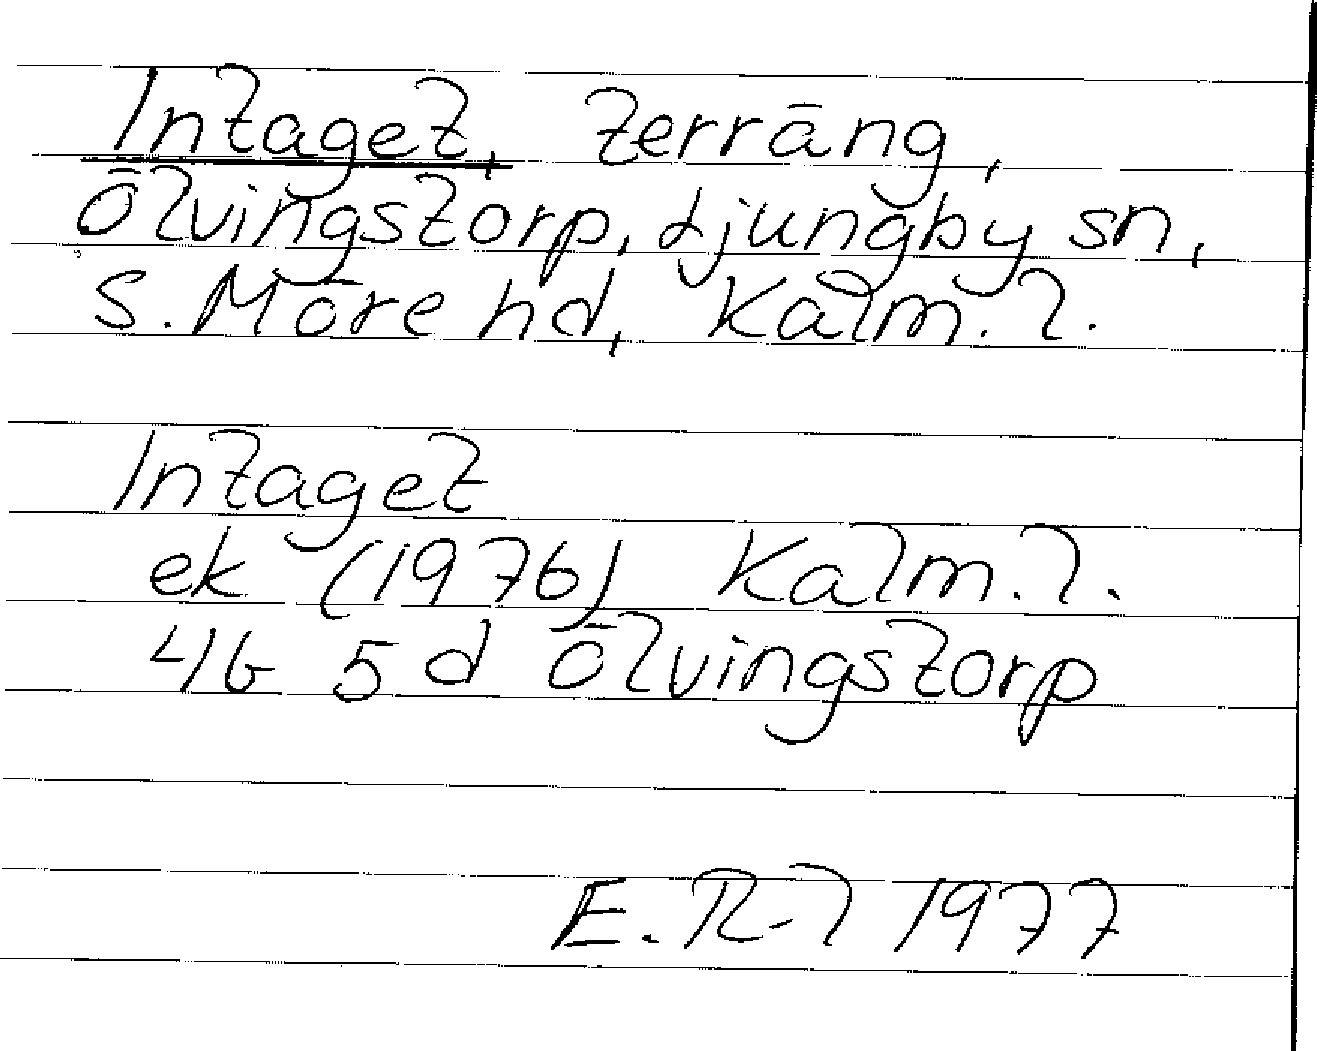 Intaget, terräng,
Ölvingstorp, Ljungby sn,
S. Möre hd, Kalm. l.
Intaget
ek (1976) Kalm. l.
4G 5d Ölvingstorp
E. R-l 1977